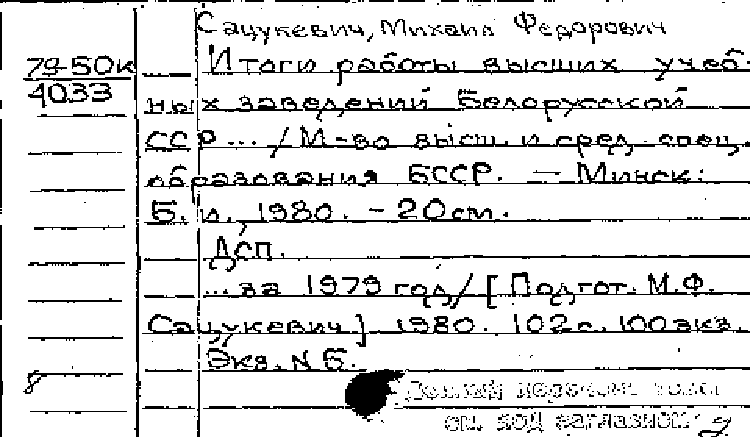 Сацукевич, Михаил Федорович
79-50к
4033
Итоги работы высших учеб-
ных заведений Белорусской
ССР ... / М-во высш. и сред. спец.
образования БССР. — Минск:
Б. и., 1980. - 20 см.
Дсп.
... за 1979 год / [Подгот. М.Ф.
Сацукевич]. 1980. 102 с. 100 экз.
Экз. N 6.
8
см. под заглавием